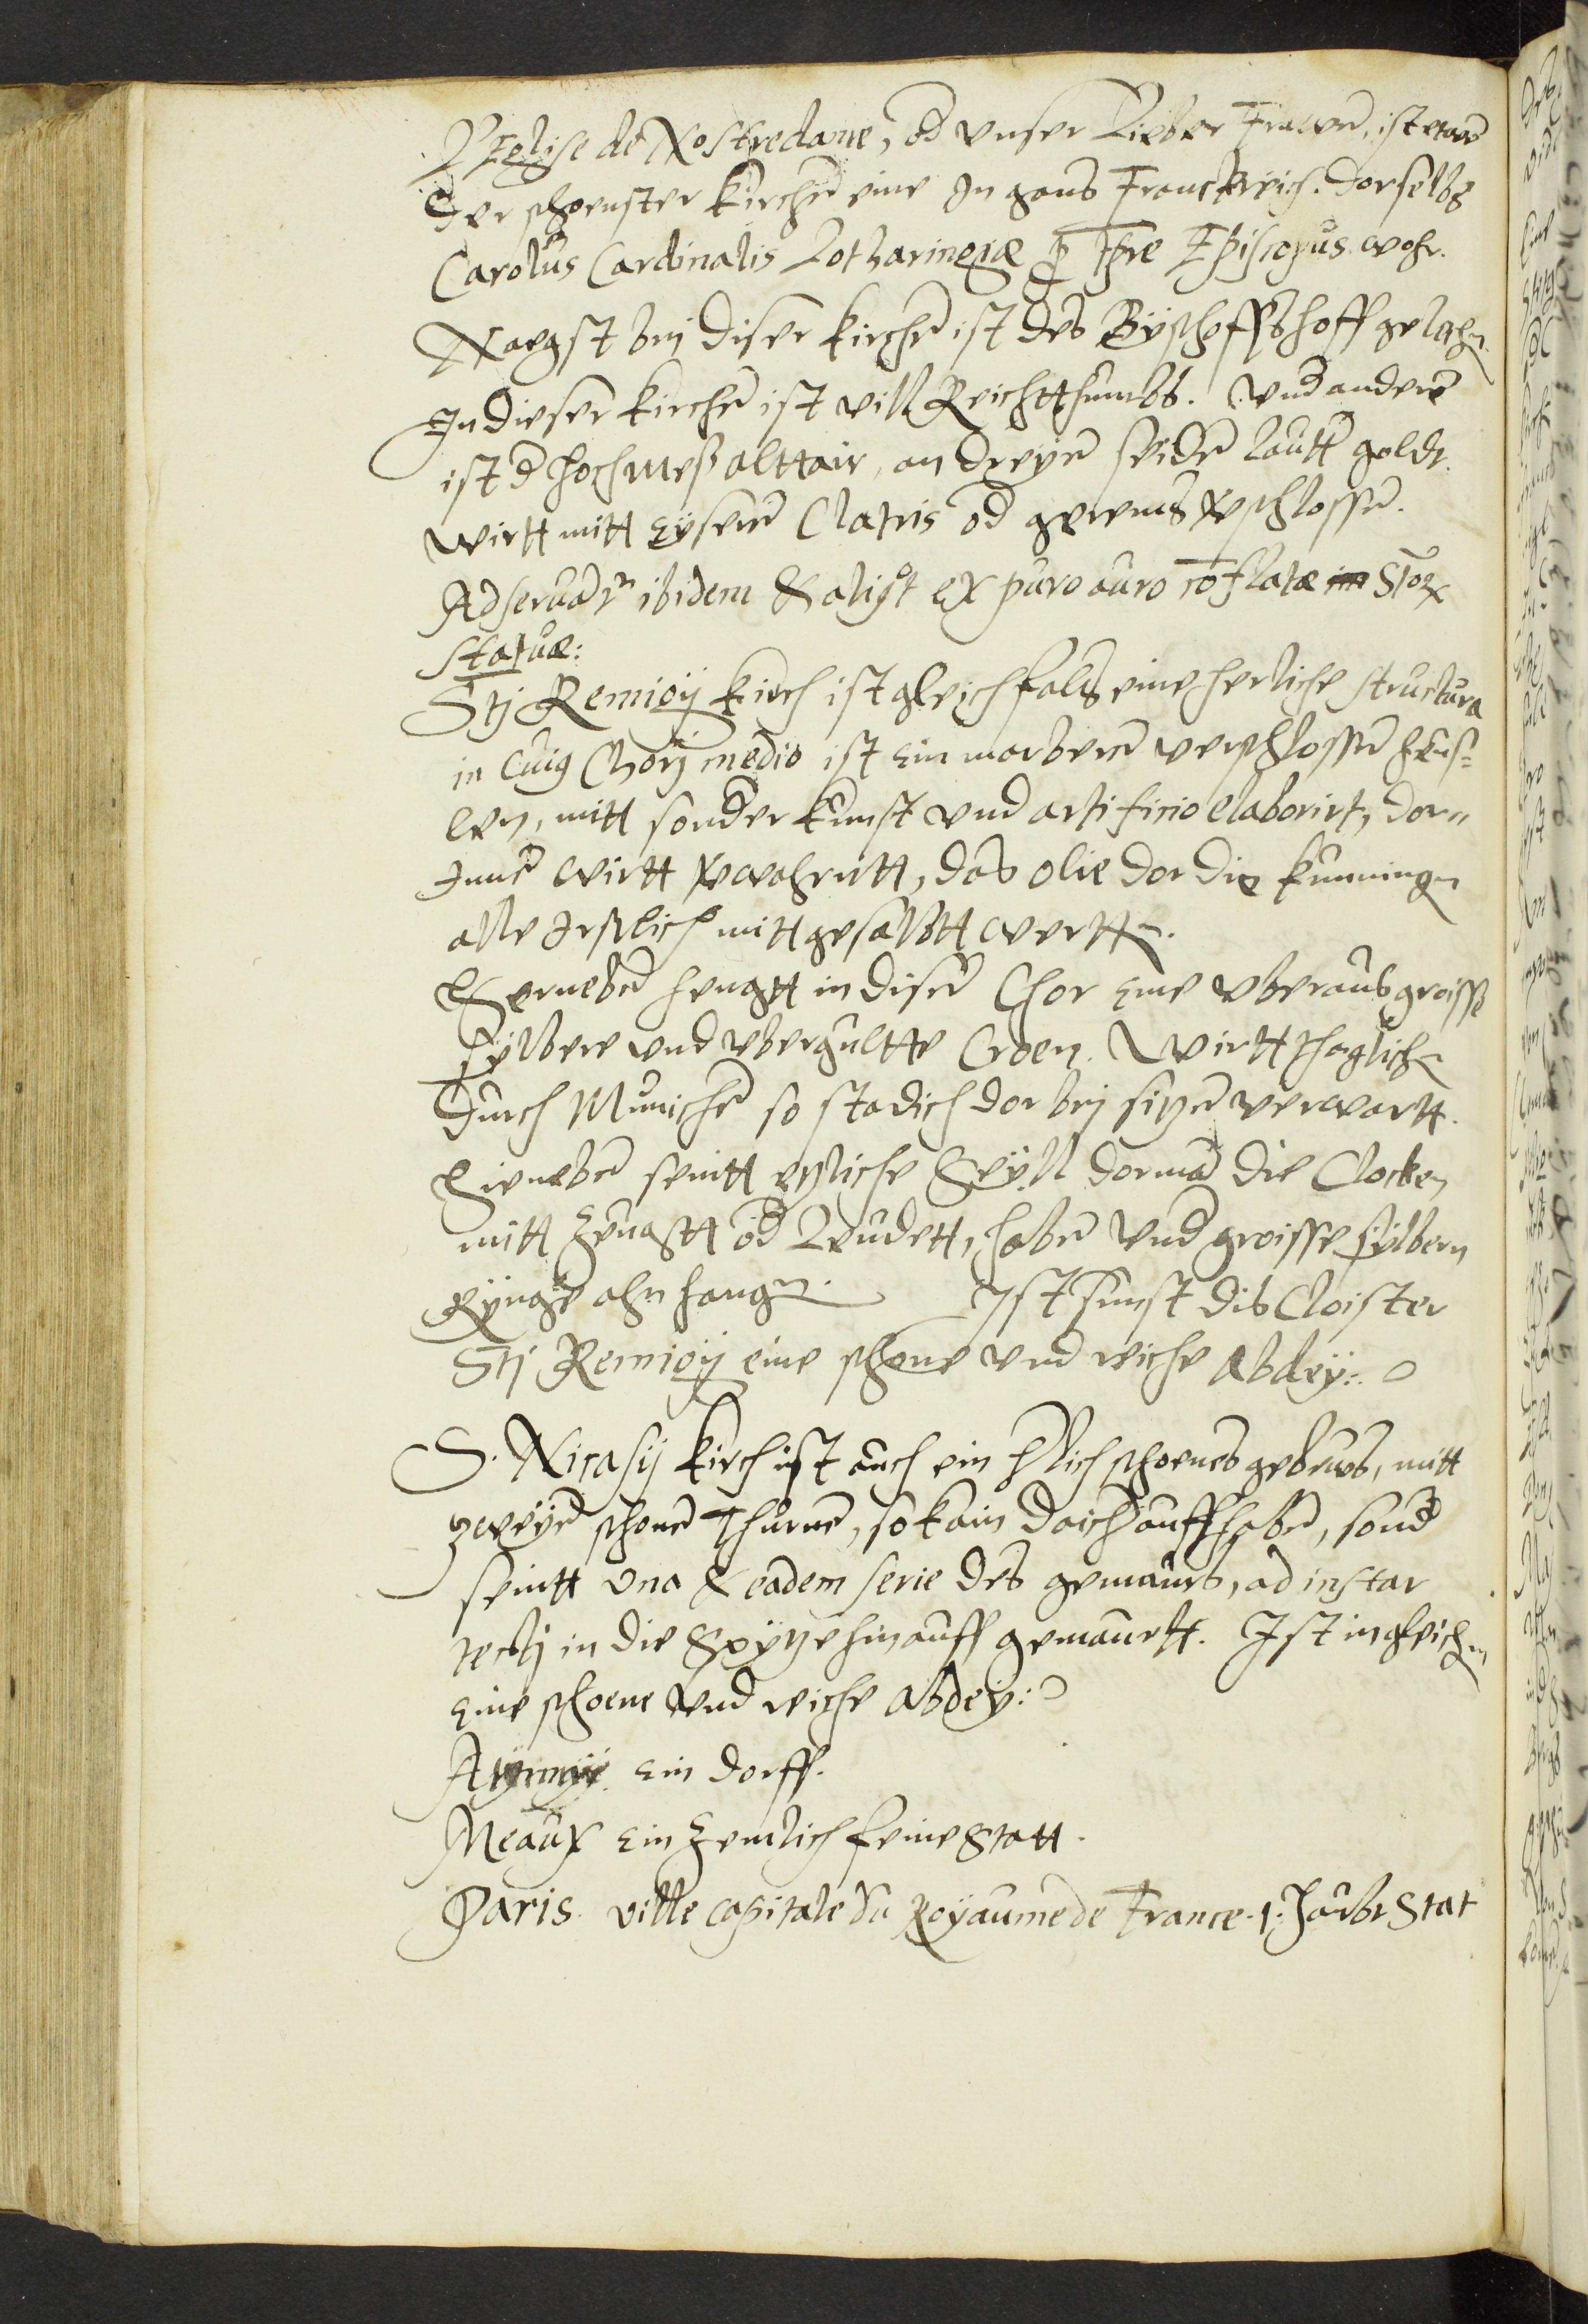 L'Eglise de Nostredame, od unser Lieber Frawen, ist etwan
der schoenster Kirchen eine In gans Franckreich. dorselbs
Carolus Cardinalis Lotharingiæ p̄ tpre Episcopus wohr.
Naegst bey diser kirchen ist des Byschoffshoff gelegen.
In dieser kirchen ist vill Reichtthumbs. Und andern
ist d hochmeß alttair, an dreyen seiden lautt goldt.
wirtt mitt Eyseren Clatris od geremts vschlossen.
Adservadr ibidem & aligt ex puro auro coflatæ Stor
statuæ:
Stj Remigij kirch ist gleichfals eine herliche structura
in cuig Chorj medio ist ein marberen verschlossen heus=
len, mitt sonder kunst und artificio elaborirt, dor=
Innen wirtt vwahrett, das olie dor die kunningen
alle Erstlich mitt gesalbtt wertten.
Hernebn hengtt in disen Chor Eine uberaus groisse
sylbere und ubergultte Croen. Wirtt thaglichen
durch Munichen so stadich dor bey sitzen verwartt.
Hieneben seintt etzliche Seyll dorman die Clocken
mitt zeugtt od Leudett, haben und groisse sylbern
Rynge ahn hangen. Ist sunst dis Cloister
Stj Remigij eine schone und riche Abdey:
S. Nicasij kirch ist auch ein hlich schoenes gebeuws, mitt
zweyen schonen Thurnen, so kain daich auff haben, sond
seintt una & eadem serie des gemaurs, ad instar
tectj in die Spytze hinauff gemaurtt. Ist in gleichen
eine schoene und riche Abdey:
ein dorff.
Meaux ein zemlich feine Statt.
Paris ville capitale du Royaume de France. 1. Haubt Stat